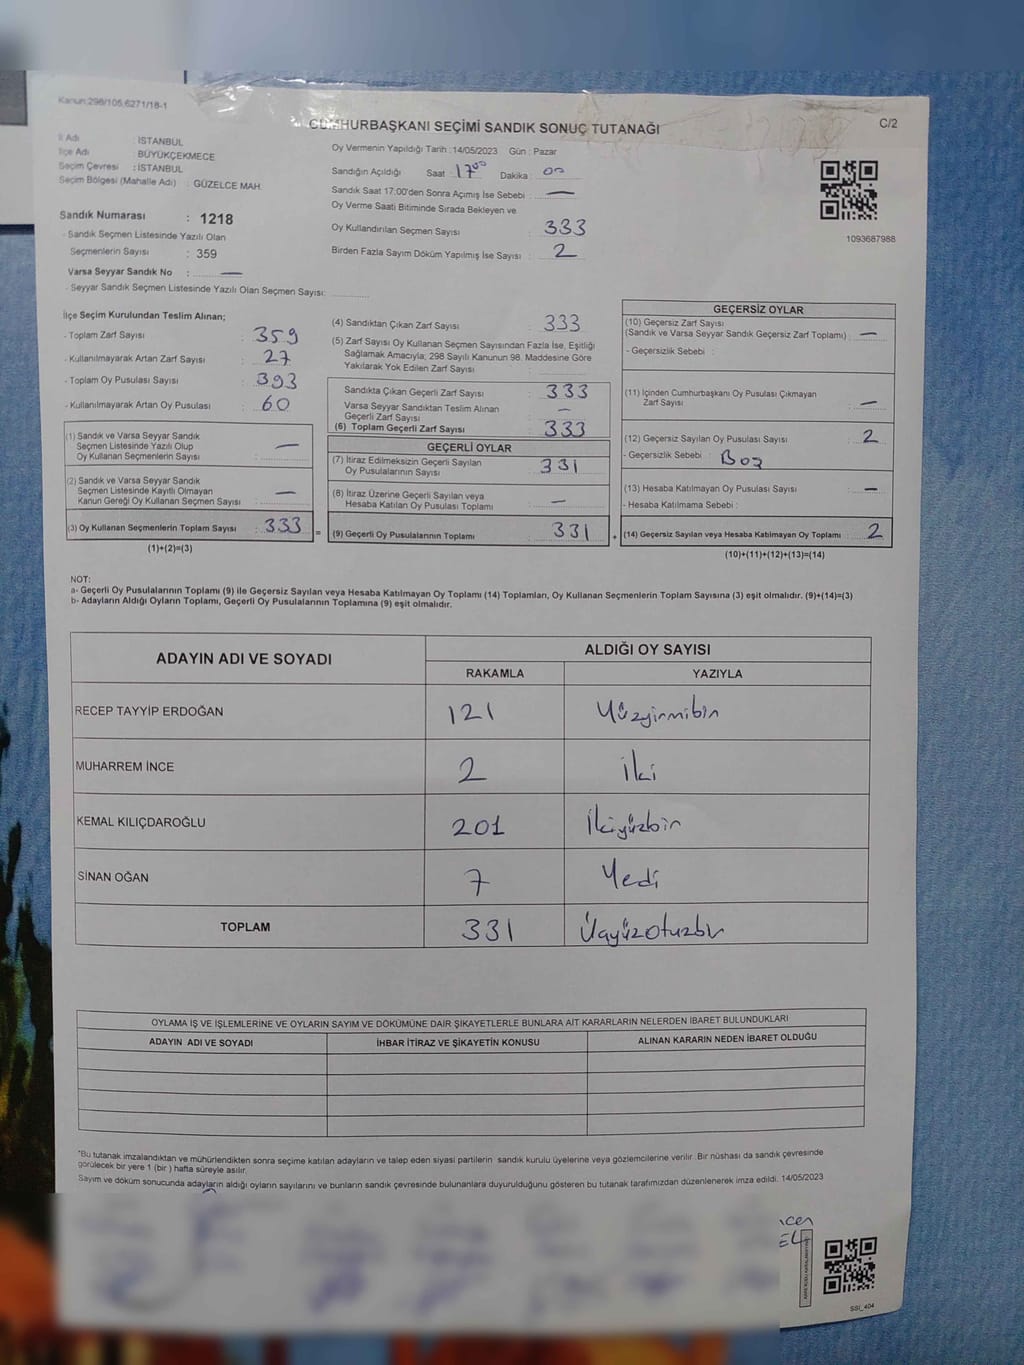 Kanun:298/105,6271/18-1
CUMHURBAŞKANI SEÇİMİ SANDIK SONUÇ TUTANAĞI
C/2
İl Adı : İSTANBUL
İlçe Adı : BÜYÜKÇEKMECE
Seçim Çevresi : İSTANBUL
Seçim Bölgesi (Mahalle Adı) : GÜZELCE MAH.
Sandık Numarası : 1218
- Sandık Seçmen Listesinde Yazılı Olan
Seçmenlerin Sayısı : 359
Varsa Seyyar Sandık No : —
- Seyyar Sandık Seçmen Listesinde Yazılı Olan Seçmen Sayısı:
Oy Vermenin Yapıldığı Tarih : 14/05/2023 Gün : Pazar
Sandığın Açıldığı Saat : 17⁰⁰ Dakika : 00
Sandık Saat 17:00'den Sonra Açımış İse Sebebi : —
Oy Verme Saati Bitiminde Sırada Bekleyen ve
Oy Kullandırılan Seçmen Sayısı : 333
Birden Fazla Sayım Döküm Yapılmış İse Sayısı : 2
1093687988
İlçe Seçim Kurulundan Teslim Alınan;
- Toplam Zarf Sayısı : 359
- Kullanılmayarak Artan Zarf Sayısı : 27
- Toplam Oy Pusulası Sayısı : 393
- Kullanılmayarak Artan Oy Pusulası : 60
(1) Sandık ve Varsa Seyyar Sandık
Seçmen Listesinde Yazılı Olup
Oy Kullanan Seçmenlerin Sayısı : —
(2) Sandık ve Varsa Seyyar Sandık
Seçmen Listesinde Kayıtlı Olmayan
Kanun Gereği Oy Kullanan Seçmen Sayısı : —
(3) Oy Kullanan Seçmenlerin Toplam Sayısı : 333 =
(1)+(2)=(3)
(4) Sandıktan Çıkan Zarf Sayısı : 333
(5) Zarf Sayısı Oy Kullanan Seçmen Sayısından Fazla İse, Eşitliği
Sağlamak Amacıyla; 298 Sayılı Kanunun 98. Maddesine Göre
Yakılarak Yok Edilen Zarf Sayısı :
Sandıkta Çıkan Geçerli Zarf Sayısı : 333
Varsa Seyyar Sandıktan Teslim Alınan
Geçerli Zarf Sayısı : —
(6) Toplam Geçerli Zarf Sayısı : 333
GEÇERLİ OYLAR
(7) İtiraz Edilmeksizin Geçerli Sayılan
Oy Pusulalarının Sayısı : 331
(8) İtiraz Üzerine Geçerli Sayılan veya
Hesaba Katılan Oy Pusulası Toplamı : —
(9) Geçerli Oy Pusulalarının Toplamı : 331 +
GEÇERSİZ OYLAR
(10) Geçersiz Zarf Sayısı
(Sandık ve Varsa Seyyar Sandık Geçersiz Zarf Toplamı) : —
- Geçersizlik Sebebi :
(11) İçinden Cumhurbaşkanı Oy Pusulası Çıkmayan
Zarf Sayısı : —
(12) Geçersiz Sayılan Oy Pusulası Sayısı : 2
- Geçersizlik Sebebi : Boş
(13) Hesaba Katılmayan Oy Pusulası Sayısı : —
- Hesaba Katılmama Sebebi :
(14) Geçersiz Sayılan veya Hesaba Katılmayan Oy Toplamı : 2
(10)+(11)+(12)+(13)=(14)
NOT:
a- Geçerli Oy Pusulalarının Toplamı (9) ile Geçersiz Sayılan veya Hesaba Katılmayan Oy Toplamı (14) Toplamları, Oy Kullanan Seçmenlerin Toplam Sayısına (3) eşit olmalıdır. (9)+(14)=(3)
b- Adayların Aldığı Oyların Toplamı, Geçerli Oy Pusulalarının Toplamına (9) eşit olmalıdır.
ADAYIN ADI VE SOYADI
ALDIĞI OY SAYISI
RAKAMLA YAZIYLA
RECEP TAYYİP ERDOĞAN 121 Yüzyirmibir
MUHARREM İNCE 2 İki
KEMAL KILIÇDAROĞLU 201 İkiyüzbir
SİNAN OĞAN 7 Yedi
TOPLAM 331 Üçyüzotuzbir
OYLAMA İŞ VE İŞLEMLERİNE VE OYLARIN SAYIM VE DÖKÜMÜNE DAİR ŞİKAYETLERLE BUNLARA AİT KARARLARIN NELERDEN İBARET BULUNDUKLARI
ADAYIN ADI VE SOYADI İHBAR İTİRAZ VE ŞİKAYETİN KONUSU ALINAN KARARIN NEDEN İBARET OLDUĞU
*Bu tutanak imzalandıktan ve mühürlendikten sonra seçime katılan adayların ve talep eden siyasi partilerin sandık kurulu üyelerine veya gözlemcilerine verilir. Bir nüshası da sandık çevresinde
görülecek bir yere 1 (bir ) hafta süreyle asılır.
Sayım ve döküm sonucunda adayların aldığı oyların sayılarını ve bunların sandık çevresinde bulunanlara duyurulduğunu gösteren bu tutanak tarafımızdan düzenlenerek imza edildi. 14/05/2023
SSI_404